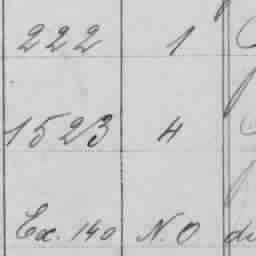 222 1
1523 4
Ex. 140 N. O de